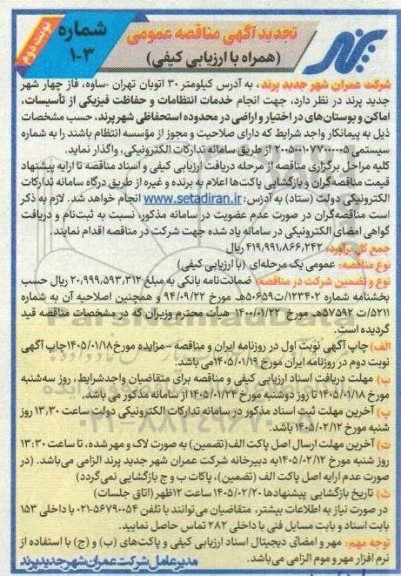 تجدید آگهی مناقصه عمومی
(همراه با ارزیابی کیفی)
شماره
۱-۰۳
نوبت دوم
شرکت عمران شهر جدید پرند، به آدرس کیلومتر ۳۰ اتوبان تهران -ساوه، فاز چهار شهر
جدید پرند در نظر دارد، جهت انجام خدمات انتظامات و حفاظت فیزیکی از تأسیسات،
اماکن و بوستان‌های در اختیار و اراضی در محدوده استحفاظی شهر پرند، حسب مشخصات
ذیل به پیمانکار واجد شرایط که دارای صلاحیت و مجوز از مؤسسه انتظام باشند را به شماره
سیستمی ۲۰۰۵۰۰۱۰۷۷۰۰۰۰۰۵ از طریق سامانه تدارکات الکترونیکی، واگذار نماید.
کلیه مراحل برگزاری مناقصه از مرحله دریافت ارزیابی کیفی و اسناد مناقصه تا ارایه پیشنهاد
قیمت مناقصه‌گران و بازگشایی پاکت‌ها اعلام به برنده و غیره از طریق درگاه سامانه تدارکات
الکترونیکی دولت (ستاد) به آدرس: www.setadiran.ir انجام خواهد شد. لازم به ذکر
است مناقصه‌گران در صورت عدم عضویت در سامانه مذکور، نسبت به ثبت‌نام و دریافت
گواهی امضای الکترونیکی در سامانه یاد شده جهت شرکت در مناقصه اقدام نمایند.
جمع کل برآورد: ۴۱۹,۹۹۱,۸۶۶,۲۴۲ ریال
نوع مناقصه: عمومی یک مرحله‌ای (با ارزیابی کیفی)
نوع و تضمین شرکت در مناقصه: ضمانت‌نامه بانکی به مبلغ ۲۰,۹۹۹,۵۹۳,۳۱۲ ریال حسب
بخشنامه شماره ۱۲۳۴۰۲/ت۵۰۶۵۹هـ مورخ ۹۴/۰۹/۲۲ و همچنین اصلاحیه آن به شماره
۵۲۱۱/ت ۵۷۵۹۲هـ مورخ ۱۴۰۰/۰۱/۲۲ هیأت محترم وزیران که در مشخصات مناقصه قید
گردیده است.
الف) چاپ آگهی نوبت اول در روزنامه ایران و مناقصه – مزایده مورخ ۱۴۰۵/۰۱/۱۸ چاپ آگهی
نوبت دوم در روزنامه ایران مورخ ۱۴۰۵/۰۱/۱۹ می باشد.
ب) مهلت دریافت اسناد ارزیابی کیفی و مناقصه برای متقاضیان واجدشرایط، روز سه‌شنبه
مورخ ۱۴۰۵/۰۱/۱۸ تا روز دوشنبه مورخ ۱۴۰۵/۰۱/۲۴ از سامانه مذکور می باشد.
پ) آخرین مهلت ثبت اسناد مذکور در سامانه تدارکات الکترونیکی دولت ساعت ۱۳:۳۰ روز
شنبه مورخ ۱۴۰۵/۰۲/۱۲ باشد.
ت) آخرین مهلت ارسال اصل پاکت الف(تضمین) به صورت لاک و مهر شده، تا ساعت ۱۳:۳۰
روز شنبه مورخ ۱۴۰۵/۰۲/۱۲ به دبیرخانه شرکت عمران شهر جدید پرند الزامی می‌باشد. (در
صورت عدم ارایه اصل پاکت الف (تضمین)، پاکات ب و ج بازگشایی نمی‌گردد)
ث) تاریخ بازگشایی پیشنهادها ۱۴۰۵/۰۲/۲۰ ساعت ۱۲ظهر (اتاق جلسات)
در صورت نیاز به اطلاعات بیشتر، متقاضیان می‌توانند با تلفن ۵۶۷۹۰۰۵۴-۰۲۱ با داخلی ۱۵۳
بابت اسناد و بابت مسایل فنی با داخلی ۲۸۲ تماس حاصل نمایید.
توجه مهم: مهر و امضای دیجیتال اسناد ارزیابی کیفی و پاکت‌های (ب) و (ج) با استفاده از
نرم افزار مهر و موم الزامی می‌باشد.
مدیرعامل شرکت عمران شهر جدید پرند